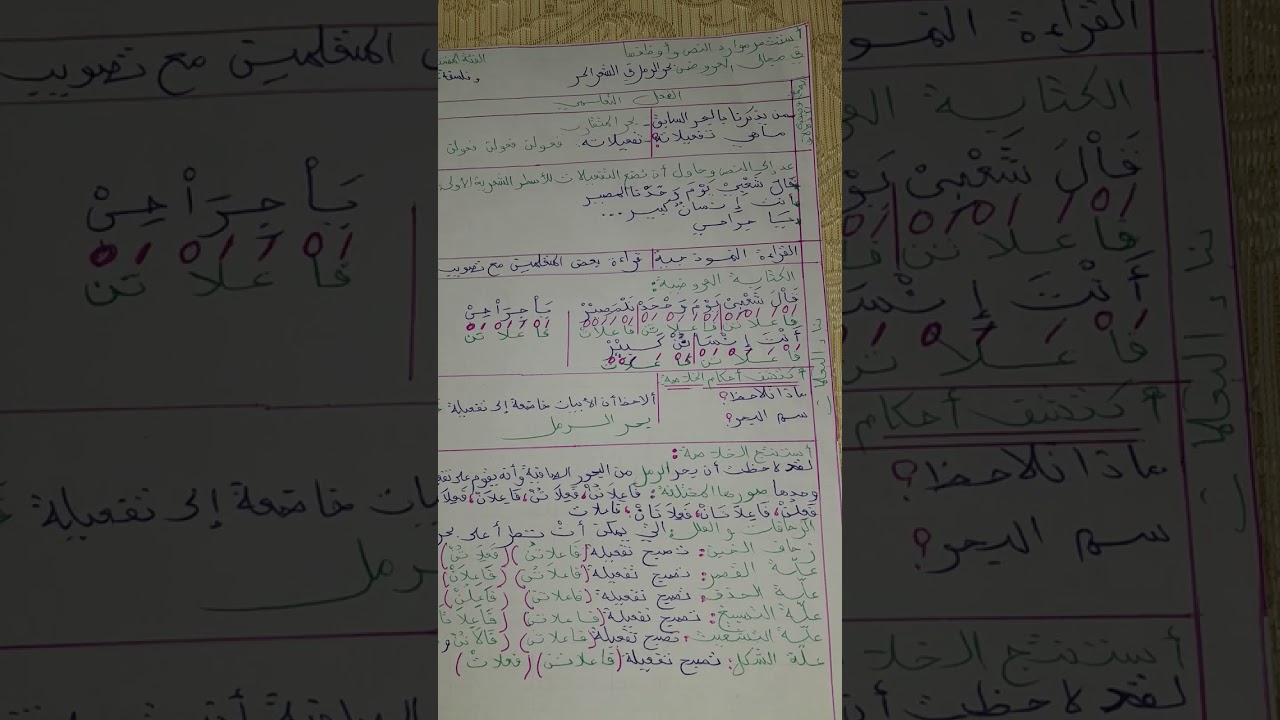 أستثمر موارد النص وأوظفها
في مجال العروض: بحر الرمل في الشعر الحر
الفعل التعلمي
من يذكرنا بالبحر السابق - بحر المتقارب
ما هي تفعيلاته؟ - تفعيلاته: فعولن فعولن فعولن
عد إلى النص وحاول أن تضع التفعيلات للأسطر الشعرية الأولى
قال شعبي يوم وحدنا المصير
أنت إنسان كبير...
يا جراحي
القراءة النموذجية قراءة بعض المتعلمين مع تصويب
الكتابة العروضية:
قَاْلَ شَعْبِيْ يَوْمَ وَحْحَدْنَلْمَصِيْرْ يَاْ جِرَاْحِيْ
/0//0/0 /0//0/0 /0//00 /0//0/0
فاعلاتن فاعلاتن فاعلات فاعلاتن
أَنْتَ إِنْسَانُنْ كَبِيْرْ
فاعلاتن فاعلات
أكتشف أحكام الخلاصة:
ماذا نلاحظ؟ ألاحظ أن الأبيات خاضعة إلى تفعيلة
سم البحر؟ بحر الرمل
أستنتج الخلاصة:
لقد لاحظت أن بحر الرمل من البحور الصافية وأنه يقوم على
وحدها صورها المختلفة: فَاعِلاَتُنْ، فَعِلاَتُنْ، فَاعِلاَتْ،
فَعِلُنْ، فَاعِلاَتَانْ، فَعِلاَتَانْ، فاعلات
الزحافات والعلل: التي يمكن أن تطرأ على بحر
زحاف الخبن: تصبح تفعيلة (فَاعلاتن) (فَعِلاَتُنْ)
علّة القصر: تصبح تفعيلة (فاعلاتن) (فَاعِلاَتْ)
علّة الحذف: تصبح تفعيلة (فاعلاتن) (فَاعِلُنْ)
علّة التسبيغ: تصبح تفعيلة (فاعلاتن)
علّة التشعيث: تصبح تفعيلة (فاعلاتن) (فَالاَتُنْ)
علّة الشكل: تصبح تفعيلة (فَاعلاتن) (فعلاتُ)